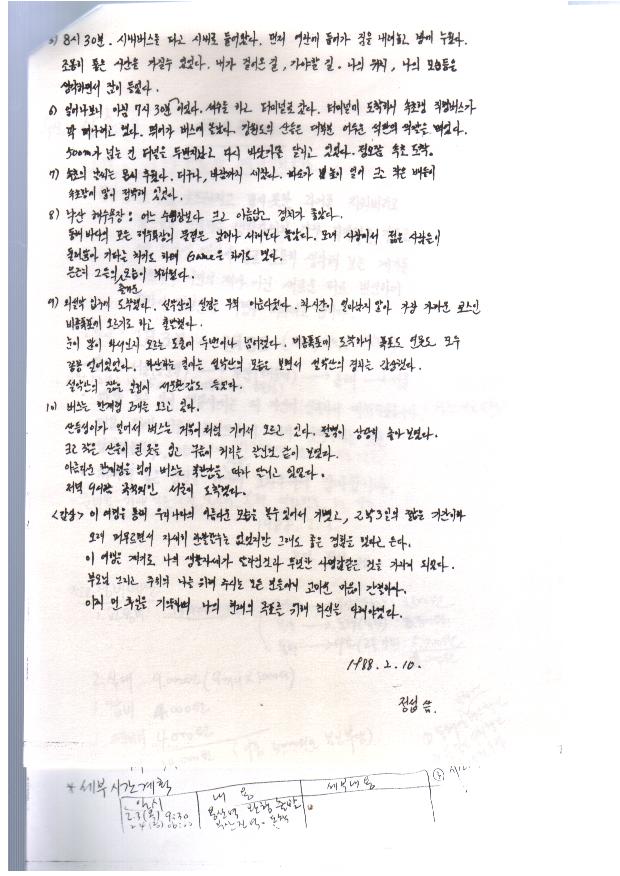 5) 8시30분. 시내버스를 타고 시내로 들어왔다. 먼저 여관에 들어가 짐을 내려놓고 방에 누웠다.
조용히 품은 시간을 가질수 있었다. 내가 걸어온 길, 가야할 길. 나의 위치, 나의 모습들을
생각하면서 잠이 들었다.
6) 일어나보니 아침 7시 30분 이었다. 세수를 하고 터미널로 갔다. 터미널에 도착하니 속초행 직행버스가
막 떠나려고 했다. 뛰어가 버스에 올랐다. 강원도의 산들은 대부분 어두운
500m가 넘는 긴 터널을 두번지나고 다시 바닷가를 달리고 있었다. 정오쯤 속초 도착.
7) 속초의 날씨는 몹시 추웠다. 더구나, 바람까지 세찼다. 파도가 높이 일어 크고 작은 배들이
속초항에 많이 정박해 있었다.
8) 낙산 해수욕장: 어느 수영장보다 크고 아름답고 경치가 좋았다.
동해 바다의 모든 해수욕장의 물결은 남해나 서해보다 높았다. 모래 사장에서 젊은 사람들이
둘러앉아 기타를 치기도 하며 Game을 하기도 했다.
은근히 그들의 즐거운 모습이 부러웠다.
9) 외설악 입구에 도착했다. 설악산의 설경은 극히 아름다웠다. 차시간이 얼마남지 않아 가장 가까운 코스인
비룡폭포에 오르기로 하고 출발했다.
눈이 많이 와서인지 오르는 도중에 두번이나 넘어졌다. 비룡폭포에 도착하니 폭포도 연못도 모두
꽁꽁 얼어있었다. 하산하는 길에는 설악산의 모습을 보면서 설악산의 경치는 감상했다.
설악산의 짧은 일정이 서운한감도 들었다.
10) 버스는 한계령 고개를 오르고 있다.
산등성이가 얼어서 버스는 거북이처럼 기어서 오르고 있다. 절벽이 상당히 높아 보였다.
크고 작은 산들이 흰옷을 입고 구름이 허리를 감은것 같이 보였다.
아름다운 한계령을 넘어 버스는 북한강을 따라 달리고 있었다.
저녁 9시쯤 서울에 도착했다.
<감상> 이 여행을 통해 우리나라의 아름다운 모습을 볼수 있어서 기뻤고, 2박3일의 짧은 기간이라
오래 머무르면서 자세히 관찰할수는 없었지만 그래도 좋은 경험을 했다고 본다.
이 여행을 계기로 나의 생활자세가 달라진것과 무한한 사명감같은 것을 가지게 되었다.
부모님 그리고 주위의 나를 위해 주시는 모든 분들에게 고마운 마음이 간절하다.
이제 먼 훗일을 기약하며 나의 현재의 목표를 위해 최선을 다해야겠다.
1988. 2. 10.
정섭 씀.
* 세부시간계획
일시 내용 세부내용
2.3(수) 9:30